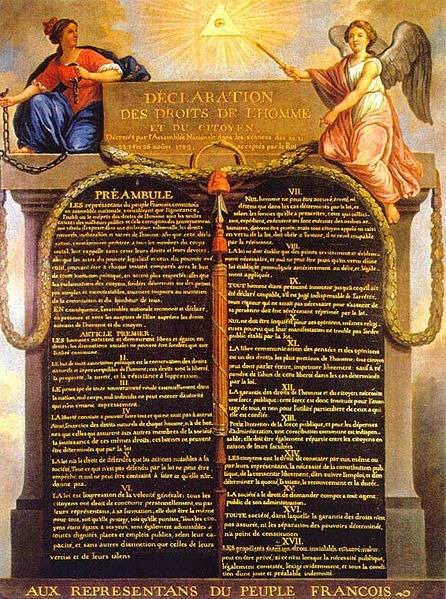 DÉCLARATION
DES DROITS DE L'HOMME
ET DU CITOYEN,
Décrétés par l'Assemblée Nationale dans les séances des 20, 21,
23, 24 et 26 aoust 1789, acceptés par le Roi
PRÉAMBULE
LES représentans du peuple François, constitués
en assemblée nationale, considérant que l'ignorance,
l'oubli ou le mépris des droits de l'homme sont les seules
causes des malheurs publics et de la corruption des gouvernemens
ont résolu d'exposer dans une déclaration solemnelle, les droits
naturels, inaliénables et sacrés de l'homme; afin que cette décla-
ration, constamment présente à tous les membres du corps
social, leur rappelle sans cesse leurs droits et leurs devoirs;
afin que les actes du pouvoir législatif et ceux du pouvoir exé-
cutif, pouvant être à chaque instant comparés avec le but
de toute institution politique, en soient plus respectés; afin que
les réclamations des citoyens, fondées désormais sur des princi-
pes simples et incontestables, tournent toujours au maintien
de la constitution et du bonheur de tous.
EN conséquence, l'assemblée nationale reconnoit et déclare,
en présence et sous les auspices de l'Etre suprême les droits
suivans de l'homme et du citoyen.
ARTICLE PREMIER.
LES hommes naissent et demeurent libres et égaux en
droits. les distinctions sociales ne peuvent être fondées que sur
l'utilité commune.
II.
LE but de toute association politique est la conservation des droits
naturels et imprescriptibles de l'homme; ces droits sont la liberté,
la propriété, la sureté, et la résistance à l'oppression.
III.
LE principe de toute souveraineté réside essentiellement dans
la nation, nul corps, nul individu ne peut exercer d'autorité
qui n'en émane expressement.
IV.
LA liberté consiste à pouvoir faire tout ce qui ne nuit pas à autrui
Ainsi, l'exercice des droits naturels de chaque homme, n'a de bor-
nes que celles qui assurent aux autres membres de la société
la jouissance de ces mêmes droits; ces bornes ne peuvent
être déterminées que par la loi
V.
LA loi n'a le droit de défendre que les actions nuisibles à la
société. Tout ce qui n'est pas défendu par la loi ne peut être
empêché, et nul ne peut être contraint à faire ce qu'elle n'or-
donne pas.
VI.
LA loi est l'expression de la volonté générale; tous les
citoyens ont droit de concourir personnellement, ou par
leurs représentans, à sa formation; elle doit être la même
pour tous, soit qu'elle protege, soit qu'elle punisse, Tous les cito-
yens étant égaux à ses yeux, sont également admissibles à
toutes dignités, places et emplois publics, selon leur capa-
cité, et sans autres distinction que celles de leurs
vertus et de leurs talens
VII.
NUL homme ne peut être accusé, arreté ni
détenu que dans les cas déterminés par la loi, et
selon les formes qu'elle a prescrites, ceux qui sollici-
tent, expédient, exécutent ou font exécuter des ordres ar-
bitraires, doivent être punis; mais tout citoyen appelé ou saisi
en vertu de la loi, doit obéir à l'instant, il se rend coupable
par la résistance.
VIII.
LA loi ne doit établir que des peines strictement et évidemment
nécessaires, et nul ne peut être puni qu'en vertu d'une
loi établie et promulguée antérieurement au délit, et légale-
ment appliquée.
IX.
TOUT homme étant présumé innocent jusqu'à ce qu'il ait
été déclaré coupable, s'il est jugé indispensable de l'arrêter,
toute rigueur qui ne seroit pas nécessaire pour s'assurer de
sa personne doit être sévèrement réprimée par la loi.
X.
NUL ne doit être inquiété pour ses opinions, mêmes religi-
euses pourvu que leur manifestation ne trouble pas l'ordre
public établi par la loi.
XI.
LA libre communication des pensées et des opinions
est un des droits les plus précieux de l'homme; tout citoyen
peut donc parler, écrire, imprimer librement, sauf à ré-
pondre de l'abus de cette liberté dans les cas déterminés
par la loi.
XII.
LA garantie des droits de l'homme et du citoyen nécessite
une force publique; cette force est donc instituée pour l'avan-
tage de tous, et non pour l'utilité particuliere de ceux à qui
elle est confiée.
XIII.
POUR l'entretien de la force publique, et pour les dépenses
d'administration, une contribution commune est indispen-
sable; elle doit être également répartie entre les citoyens en
raison de leurs facultés.
XIV.
LES citoyens ont le droit de constater par eux même ou
par leurs représentans, la nécessité de la contribution pub-
lique, de la consentir librement, d'en suivre l'emploi, et d'en
déterminer la quotité, l'assiette, le recouvrement et la durée.
XV.
LA société a le droit de demander compte à tout agent
public de son administration.
XVI.
TOUTE société, dans laquelle la garantie des droits n'est
pas assurée, ni la séparation des pouvoirs déterminée,
n'a point de constitution
XVII.
LES propriétés étant un droit inviolable et sacré, nul ne
peut en être privé, si ce n'est lorsque la nécessité publique,
légalement constatée, l'exige évidemment, et sous la condi-
tion d'une juste et préalable indemnité.
AUX REPRESENTANS DU PEUPLE FRANCOIS